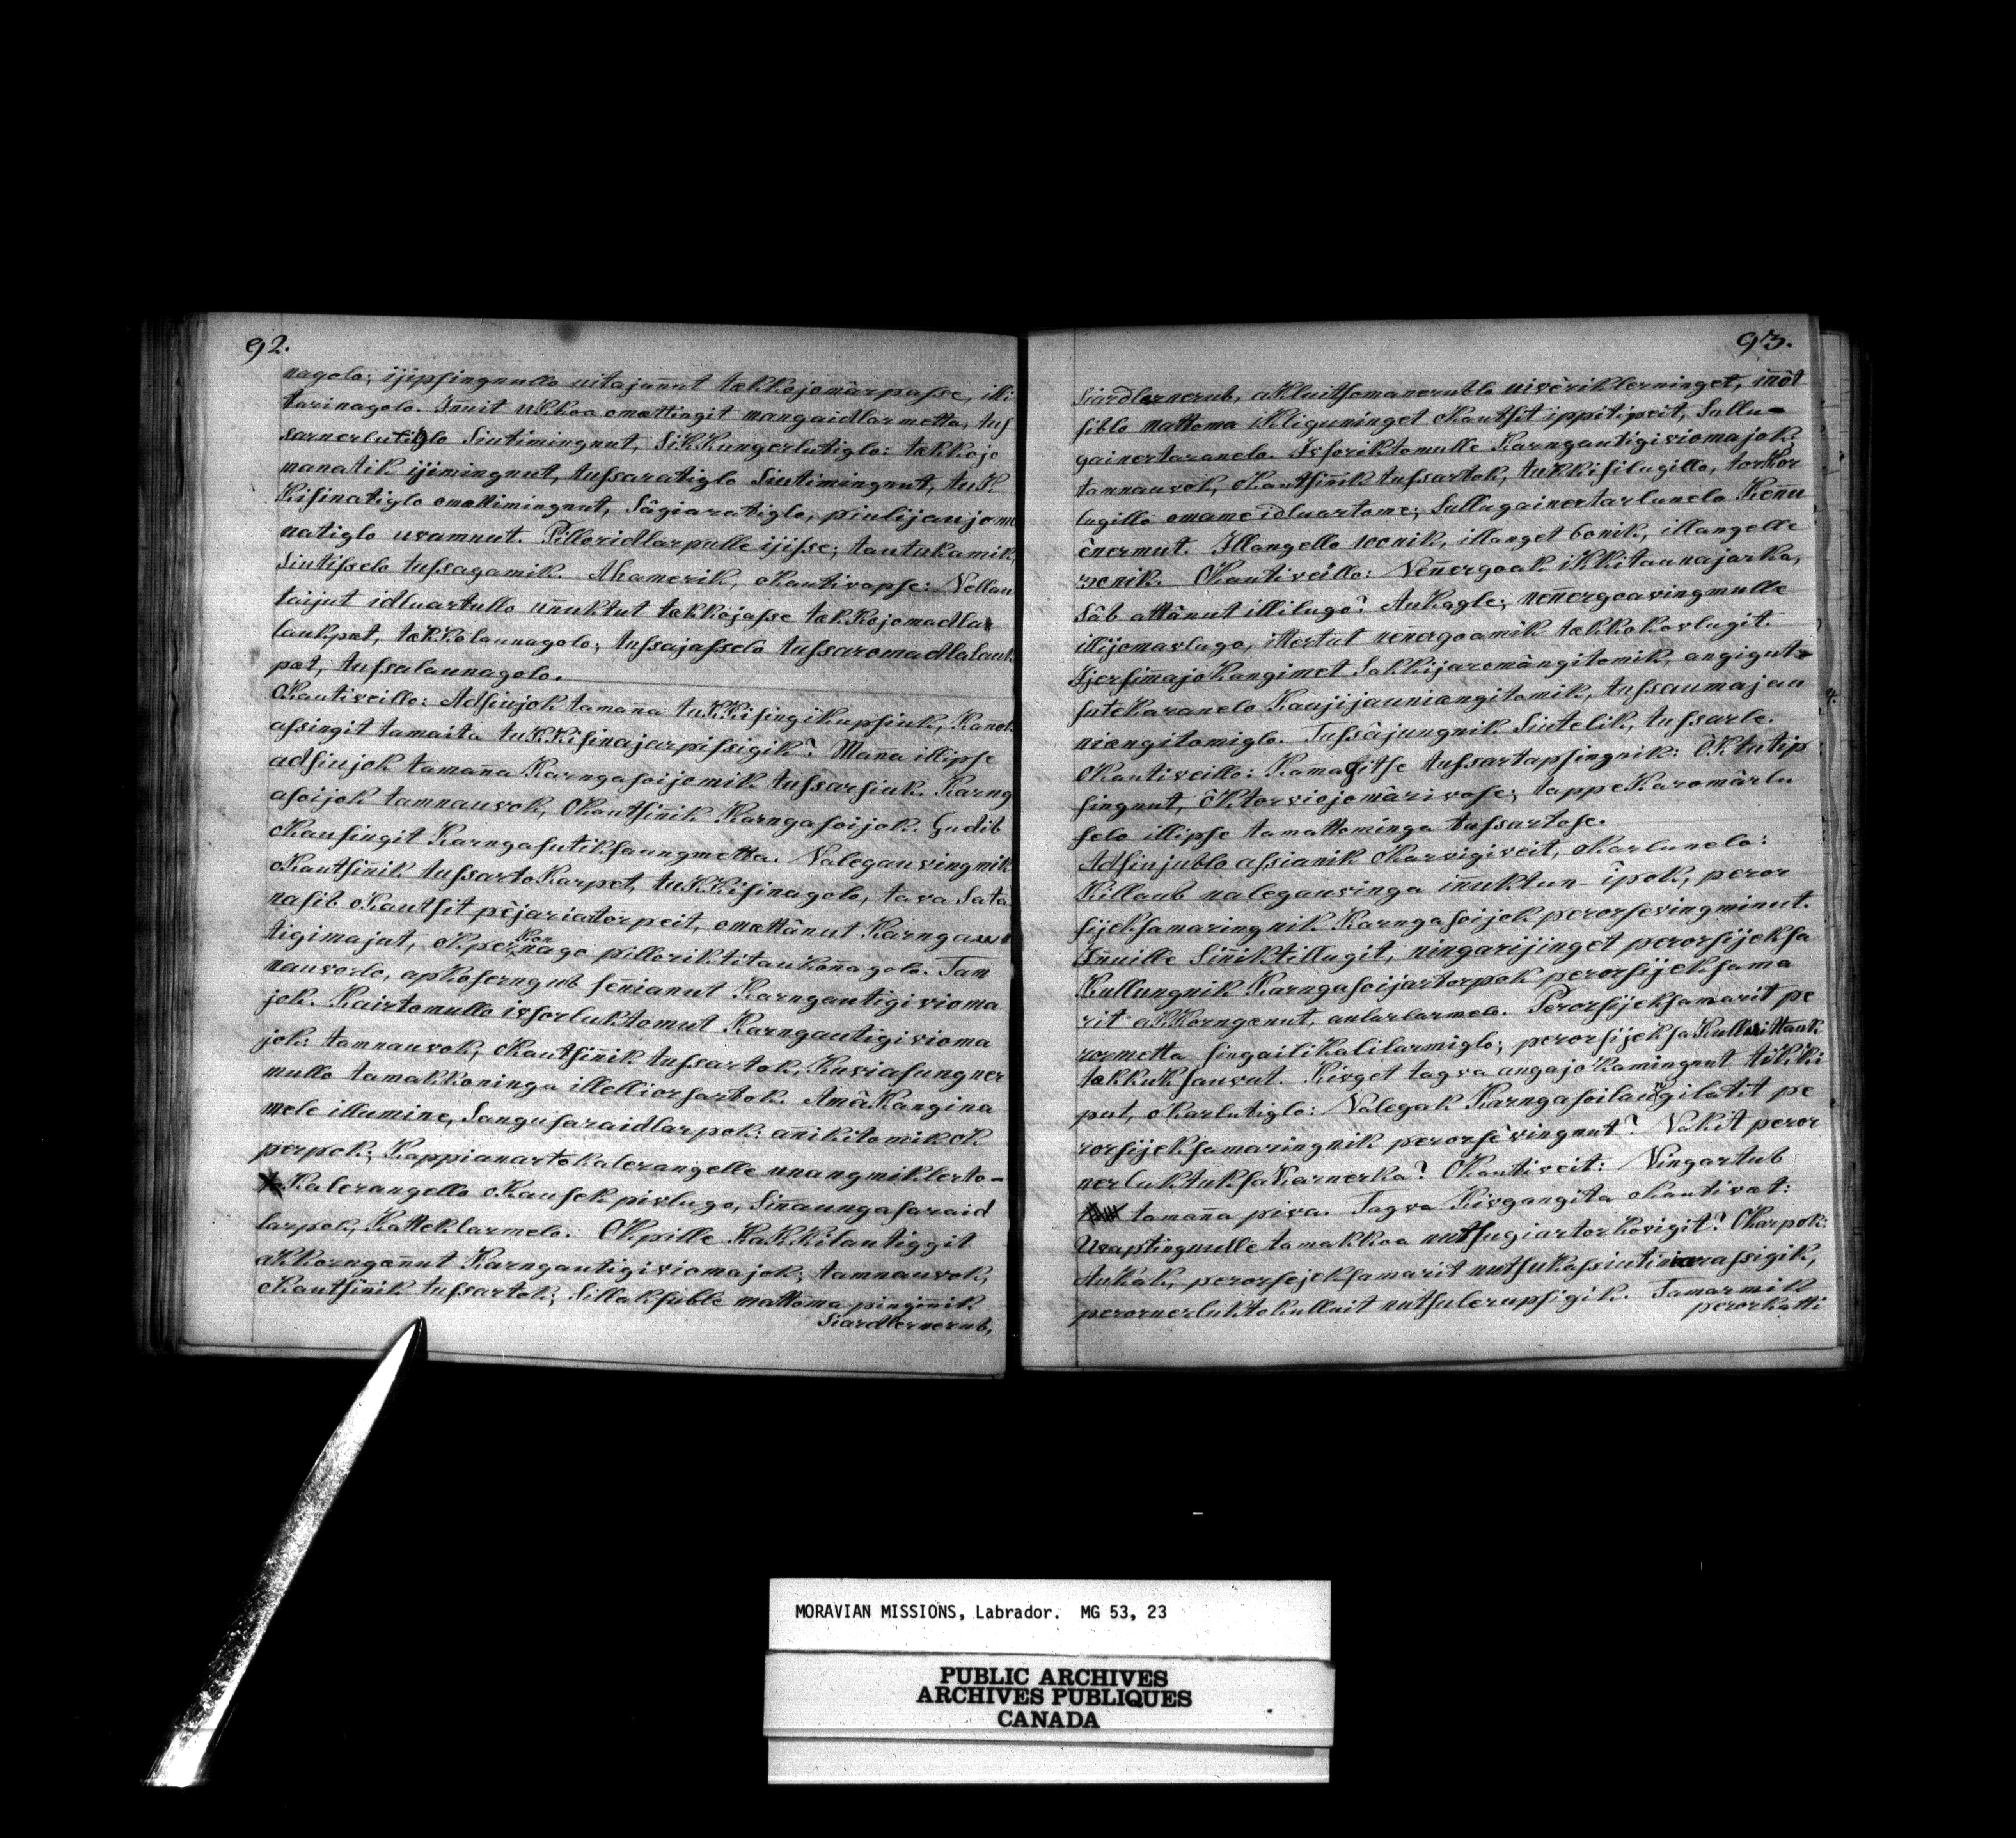 92.
nagolo; ijipsingnullo uitajunnut takkojomârpasse, illi:
tarinagolo. Innuit ukkoa omattingit mangaidlarmetta, tuf
sarnerlutiglo Siutimingnut, SiKKungerlutiglo: takkojo
manatik ijimingnut, tussaratiglo Siutimingnut, tuK
Kisinatiglo omattimingnut, Sâgiaratiglo, piulijaujoma
natiglo uvamnut. Pilloridlarpulle ijisse; tautukamik,
Siutisselo tussagamik. Ahamerik, oKautivapse: Nellau
taijut idluartullo unnuktut takkojasse takKojomadlar
laukpat, takkolaunagolo; tussajasselo tussaromadlalauk
pat, tussalaunagolo.
OKautiveillo: Adsiujok tamanna tuKKisingikupsiuk, Kannok
assingit tamaita tuKKisinajarpissigik? Manna illipse
adsiujok tamanna Karngasoijomik tussarsiuk. Karng
asoijok tamnauvok, OKautsinnik Karngasoijok. Gudib
oKausingit Karngasutiksaungmetta. Nalegauvingmik
oKautsinnik tussartoKarpet, tuKKisinagolo, tava Sata
nasib oKautsit pêjariartorpeit, omattânut Karngau
tigimajat, oKperKonnago pilloriktitauKonnagolo. Tam
nauvorlo, apKoserngub sennianut Karngautigivioma
jok. Kairtomullo ivsorluktomut Karngautigivioma
jok: tamnauvok, oKautsinnik tussartok, Kuviasungner
mullo tamakkoninga illelliorsartok. AmâKangina
mele illumine, Sangusaraidlarpok: annikitomik oK
perpok; KappianartoKalerangelle unangmiklerto-
Kalerangello oKausek pivlugo, Sinnaungasaraid
larpok, Katteklarmelo. OKpille KaKKilautiggit
akkorngannut Karngautigiviomajok; tamnauvok,
oKautsinnik tussartok; Sillaksuble mattoma pinginnik
Siardlernerub,
93.
Siardlernerub, akluitsomanerublo uivêriklerninget, innôt
siblo mattoma iKligusinget oKautsit ippitipeit, Sullu-
gainertaranelo. Ivsoriktomulle Karngautigiviomajok,
tamnauvok, oKautsinnik tussartok, tukkisilugillo, torKor
lugillo omame idluartome; Sullugainertarlunelo Kennu
ênermut. Illangello 100nik, illanget 60nik, illangelle
30nik. OKautiveillo: Nennergoak ikkitaunajarka,
Sâb attânut illilugo? AuKagle; nennergoavingmulle
illijomavlugo, ittertut nennergoamik takkokovlugit.
IjersimajoKangimet SaKKijaromângitomik, angigut-
suteKaranelo Kaujijauniangitomik, tussaumajau
niangitomiglo. Tussâjungnik Siutelik, tussarle.
OKautiveillo: Kannasitse tussartapsingnik: ÔKtutip
singnut, ôKtorviojomârivose; tappeKaromârlu
selo illipse tamattominga tussartose.
Adsiujublo assianik oKarvigiveit, oKarlunelo:
Killaub nalegauvinga innuktun-îpok, peror
sijeksamaringnik Karngasoijok perorsevingminut.
Innuille Sinniktillugit, ningarijinget perorsijeksa
Kullungnik Karngasoijartorpok perorsijeksama
rit aKKorngannut, aularlarmelo. Perorsijeksamarit pe
rormetta singailiKalilarmiglo; perorsijeksaKulluittauk
takkuksauvut. Kivget tagva angajoKamingnut tiKKi
put, oKarlutiglo: Nalegak Karngasoilaungilatit pe
rorsijeksamaringnik perorsêvingnut? Nakit peror
nerluktuksaKarnerka? OKautiveit: Ningartub
tamanna piva. Tagva Kivgangita oKautivat:
Uvaptingnulle tamakkoa nutsugiartorKovigit? OKarpok:
AuKak, perorsejeksamarit nutsukasiutiniarassigik,
perornerluktokulluit nutsulerupsigik. Tamarmik
perorKatti
MORAVIAN MISSIONS, Labrador. MG 53, 23
PUBLIC ARCHIVES
ARCHIVES PUBLIQUES
CANADA